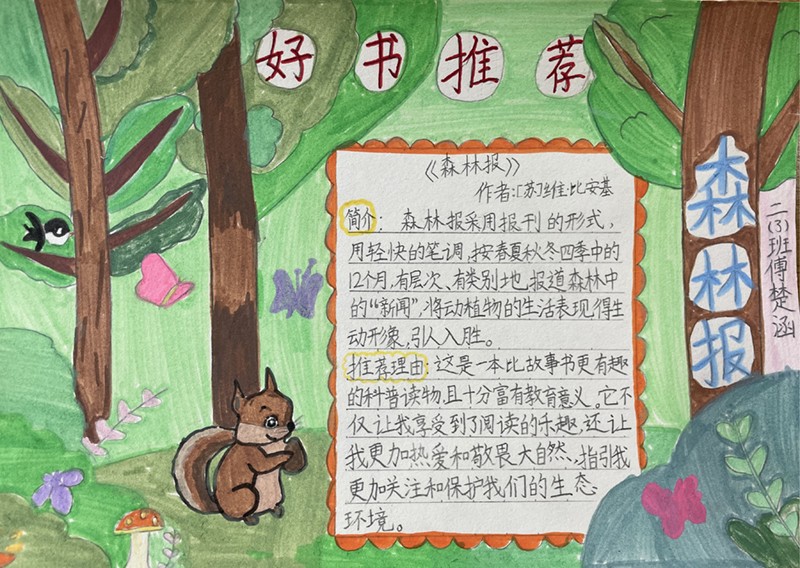 好书推荐
《森林报》
作者:[苏]维·比安基
简介：森林报采用报刊的形式，
用轻快的笔调，按春夏秋冬四季中的
12个月，有层次、有类别地，报道森林中
的“新闻”，将动植物的生活表现得生
动形象，引人入胜。
推荐理由：这是一本比故事书更有趣
的科普读物，且十分富有教育意义。它不
仅让我享受到了阅读的乐趣，还让
我更加热爱和敬畏大自然、指引我
更加关注和保护我们的生态
环境。
森林报
二(3)班傅楚涵